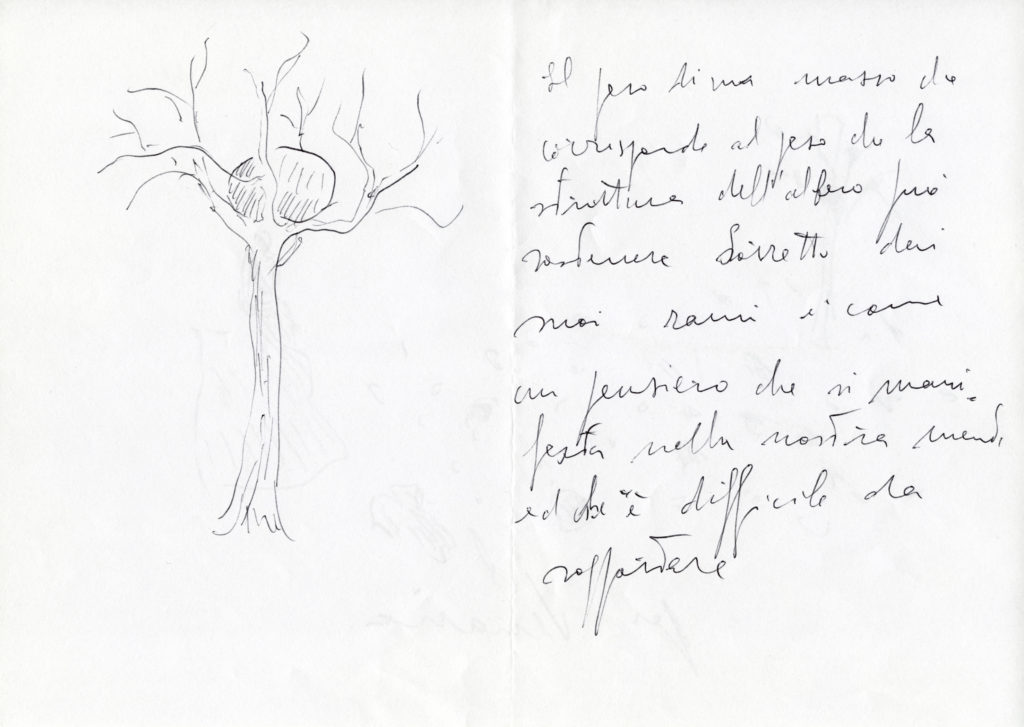 Il peso di un masso che
corrisponde al peso che la
struttura dell'albero può
sostenere sorretto dai
suoi rami è come
un pensiero che si mani-
festa nella nostra mente
ed che è difficile da
sopportare